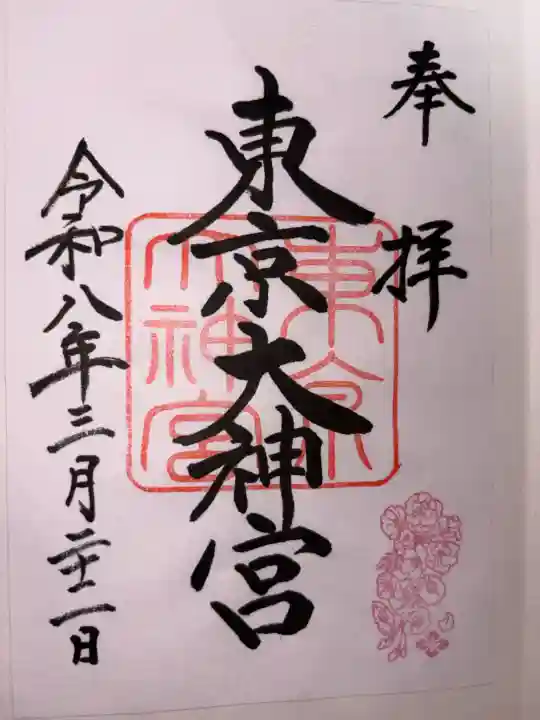 奉拝
東京大神宮
東京大神宮
令和八年三月二十二日